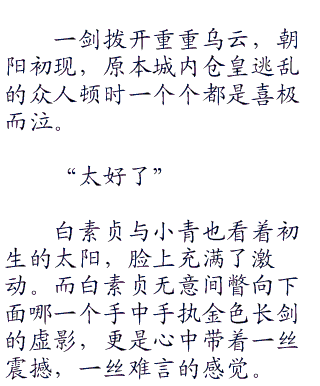 一剑拨开重重乌云，朝
阳初现，原本城内仓皇逃乱
的众人顿时一个个都是喜极
而泣。
“太好了”
白素贞与小青也看着初
生的太阳，脸上充满了激
动。而白素贞无意间瞥向下
面哪一个手中手执金色长剑
的虚影，更是心中带着一丝
震撼，一丝难言的感觉。